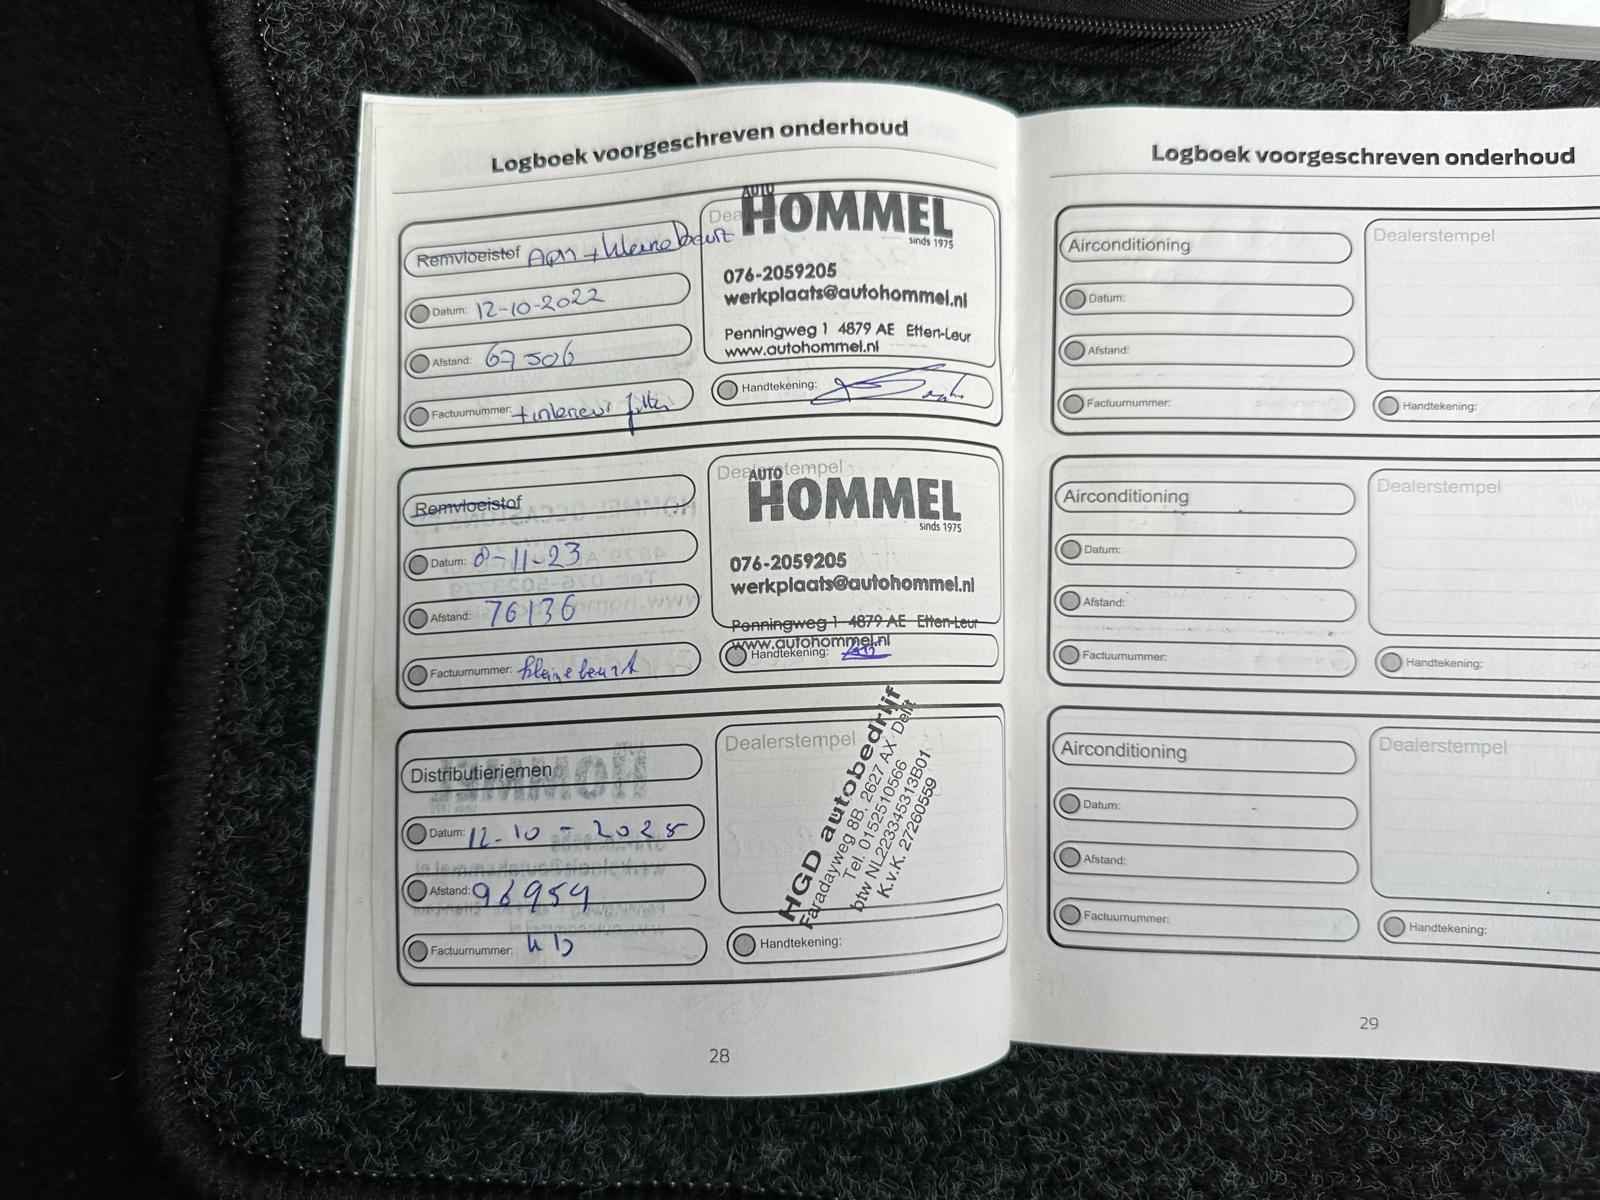 Logboek voorgeschreven onderhoud
Remvloeistof APK + kleine beurt
Datum: 12-10-2022
Afstand: 67506
Factuurnummer: + interieur filter
AUTO
HOMMEL
sinds 1975
076-2059205
werkplaats@autohommel.nl
Penningweg 1 4879 AE Etten-Leur
www.autohommel.nl
Handtekening:
Remvloeistof
Datum: 8-11-23
Afstand: 76136
Factuurnummer: kleine beurt
Dealerstempel
AUTO
HOMMEL
sinds 1975
076-2059205
werkplaats@autohommel.nl
Penningweg 1 4879 AE Etten-Leur
www.autohommel.nl
Handtekening:
Distributieriemen
Datum: 12-10-2025
Afstand: 96959
Factuurnummer:
Dealerstempel
HGD autobedrijf
Faradayweg 8B, 2627 AX Delft
Tel. 0152510566
btw NL223345313B01
K.v.K. 27260559
Handtekening:
28
Logboek voorgeschreven onderhoud
Airconditioning
Datum:
Afstand:
Factuurnummer:
Dealerstempel
Handtekening:
Airconditioning
Datum:
Afstand:
Factuurnummer:
Dealerstempel
Handtekening:
Airconditioning
Datum:
Afstand:
Factuurnummer:
Dealerstempel
Handtekening:
29